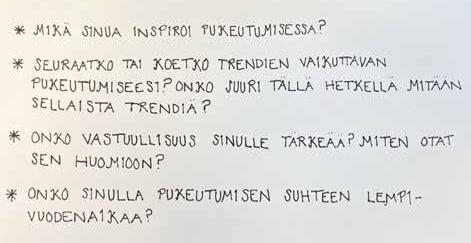 * MIKÄ SINUA INSPIROI PUKEUTUMISESSA?
* SEURAATKO TAI KOETKO TRENDIEN VAIKUTTAVAN
PUKEUTUMISEESI? ONKO JUURI TÄLLÄ HETKELLÄ MITÄÄN
SELLAISTA TRENDIÄ?
* ONKO VASTUULLISUUS SINULLE TÄRKEÄÄ? MITEN OTAT
SEN HUOMIOON?
* ONKO SINULLA PUKEUTUMISEN SUHTEEN LEMPI-
VUODENAIKAA?